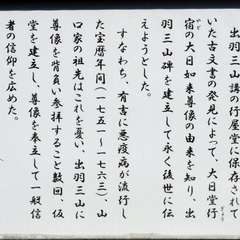 出羽三山講の行屋堂に保存されて
いた古文書の発見によって、大日堂行
宿の大日如来尊像の由来を知り、出
やど
羽三山碑を建立して永く後世に伝
えようとした。
すなわち、有吉に悪疫病が流行し
た宝暦年間(一七五一~一七六三)、山
口家の祖先はこれを憂い、出羽三山に
尊像を背負い参拝すること数回、仮
堂を建立し、尊像を奉立して一般信
者の信仰を広めた。